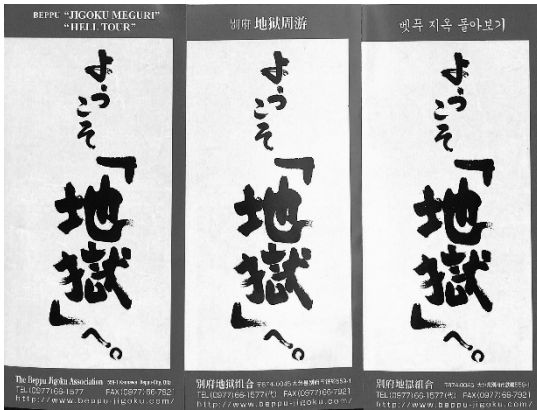 BEPPU "JIGOKU MEGURI"
"HELL TOUR"
ようこそ
「地獄」
へ。
The Beppu Jigoku Association
TEL(0977)66-1577 FAX(0977)66-7921
http://www.beppu-jigoku.com/
別府 地獄周游
ようこそ
「地獄」
へ。
別府地獄組合 〒874-0045
TEL(0977)66-1577(代) FAX(0977)66-7921
http://www.beppu-jigoku.com/
벳푸 지옥 돌아보기
ようこそ
「地獄」
へ。
別府地獄組合 〒874-0045
TEL(0977)66-1577(代) FAX(0977)66-7921
http://www.beppu-jigoku.com/